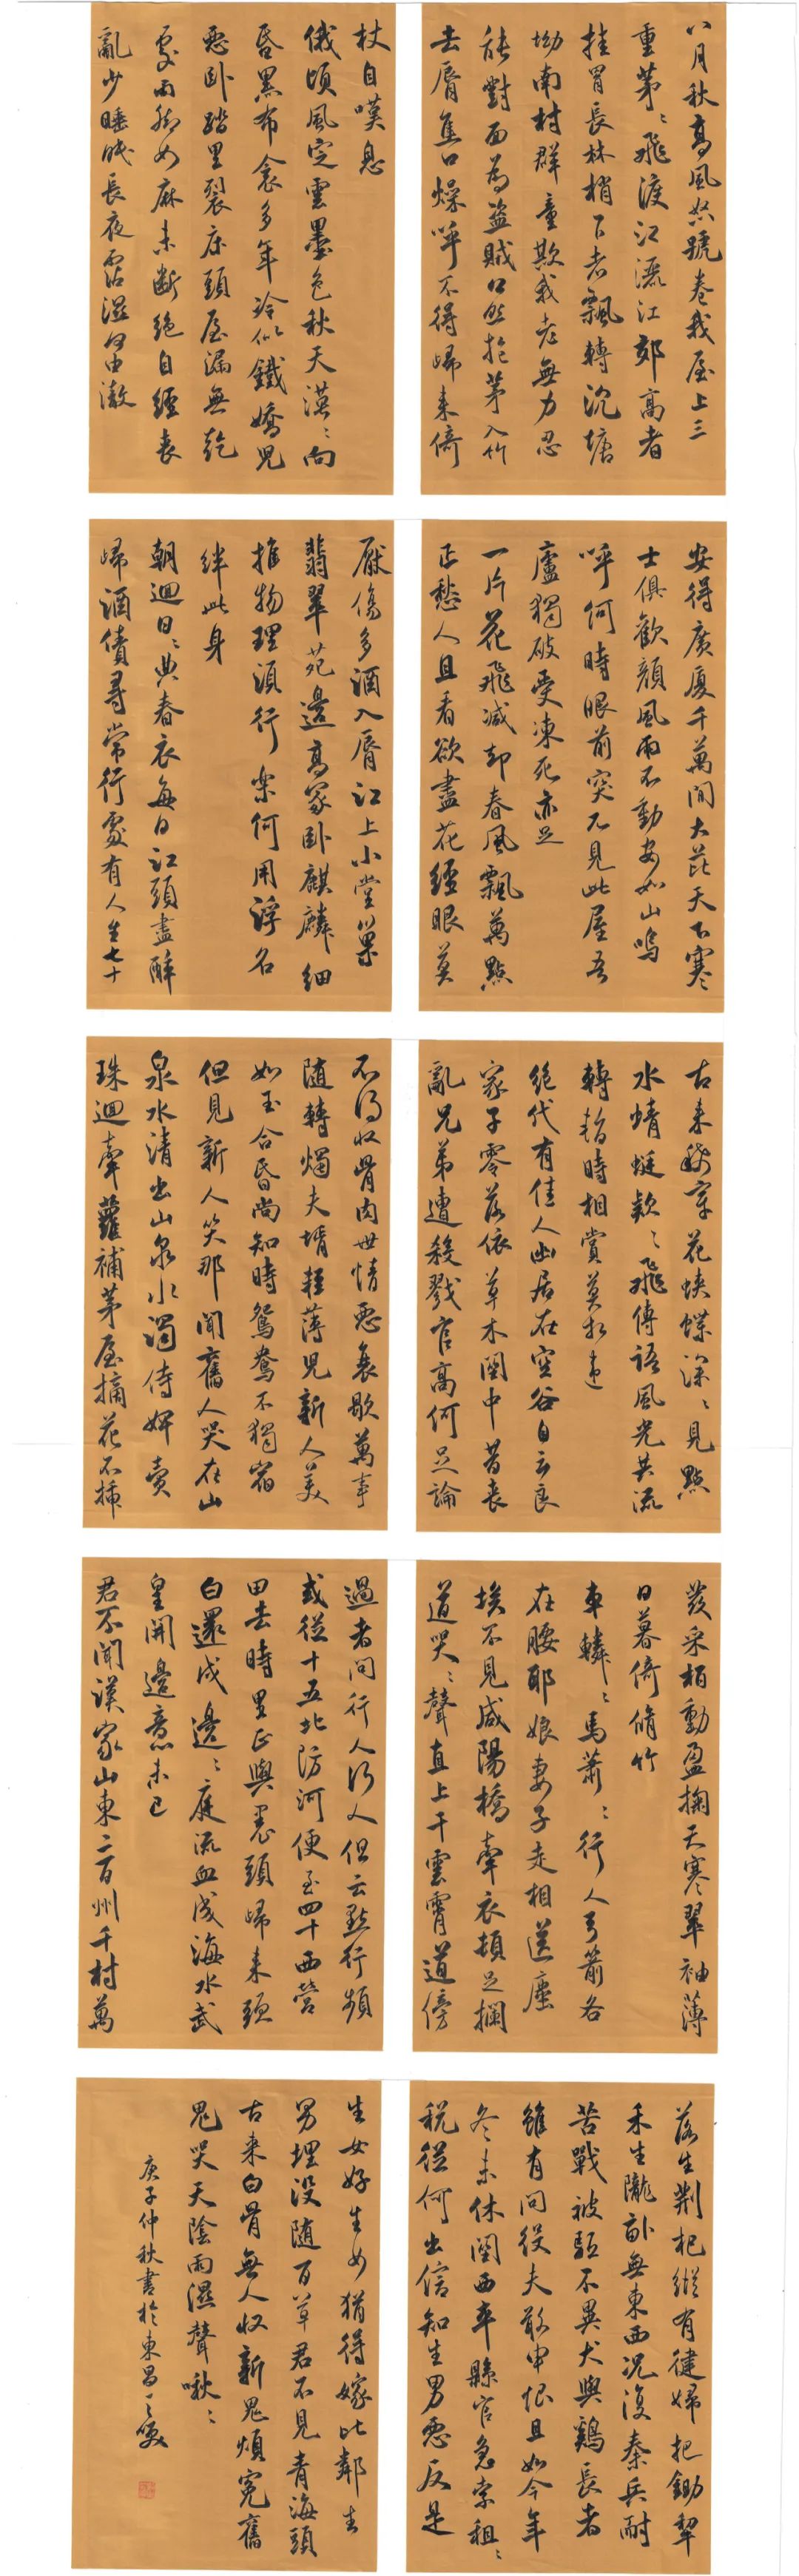 八月秋高風怒號卷我屋上三
重茅〻飛渡江灑江郊高者
挂罥長林梢下者飄轉沉塘
坳南村群童欺我老無力忍
能對面為盜賊公然抱茅入竹
去脣焦口燥呼不得歸來倚
杖自嘆息
俄頃風定雲墨色秋天漠〻向
昏黑布衾多年冷似鐵嬌兒
惡臥踏里裂床頭屋漏無乾
處雨脚如麻未斷絕自經喪
亂少睡眠長夜霑濕何由徹
安得廣廈千萬間大庇天下寒
士俱歡顏風雨不動安如山嗚
呼何時眼前突兀見此屋吾
廬獨破受凍死亦足
一片花飛減却春風飄萬點
正愁人且看欲盡花經眼莫
厭傷多酒入脣江上小堂巢
翡翠苑邊高冢臥麒麟細
推物理須行樂何用浮名
絆此身
朝迴日〻典春衣每日江頭盡醉
歸酒債尋常行處有人生七十
古來稀穿花蛺蝶深〻見點
水蜻蜓款〻飛傳語風光共流
轉暫時相賞莫相違
絕代有佳人幽居在空谷自云良
家子零落依草木關中昔喪
亂兄弟遭殺戮官高何足論
不得收骨肉世情惡衰歇萬事
隨轉燭夫壻輕薄兒新人美
如玉合昏尚知時鴛鴦不獨宿
但見新人笑那聞舊人哭在山
泉水清出山泉水濁侍婢賣
珠迴牽蘿補茅屋摘花不插
髮采柏動盈掬天寒翠袖薄
日暮倚脩竹
車轔〻馬蕭〻行人弓箭各
在腰耶娘妻子走相送塵
埃不見咸陽橋牽衣頓足攔
道哭〻聲直上干雲霄道傍
過者問行人行人但云點行頻
或從十五北防河便至四十西營
田去時里正與裹頭歸來頭
白還戍邊〻庭流血成海水武
皇開邊意未已
君不聞漢家山東二百州千村萬
落生荆杞縱有健婦把鋤犁
禾生隴畝無東西況復秦兵耐
苦戰被驅不異犬與鷄長者
雖有問役夫敢申恨且如今年
冬未休關西卒縣官急索租〻
稅從何出信知生男惡反是
生女好生女猶得嫁比鄰生
男埋沒隨百草君不見青海頭
古來白骨無人收新鬼煩冤舊
鬼哭天陰雨濕聲啾〻
庚子仲秋書於東昌